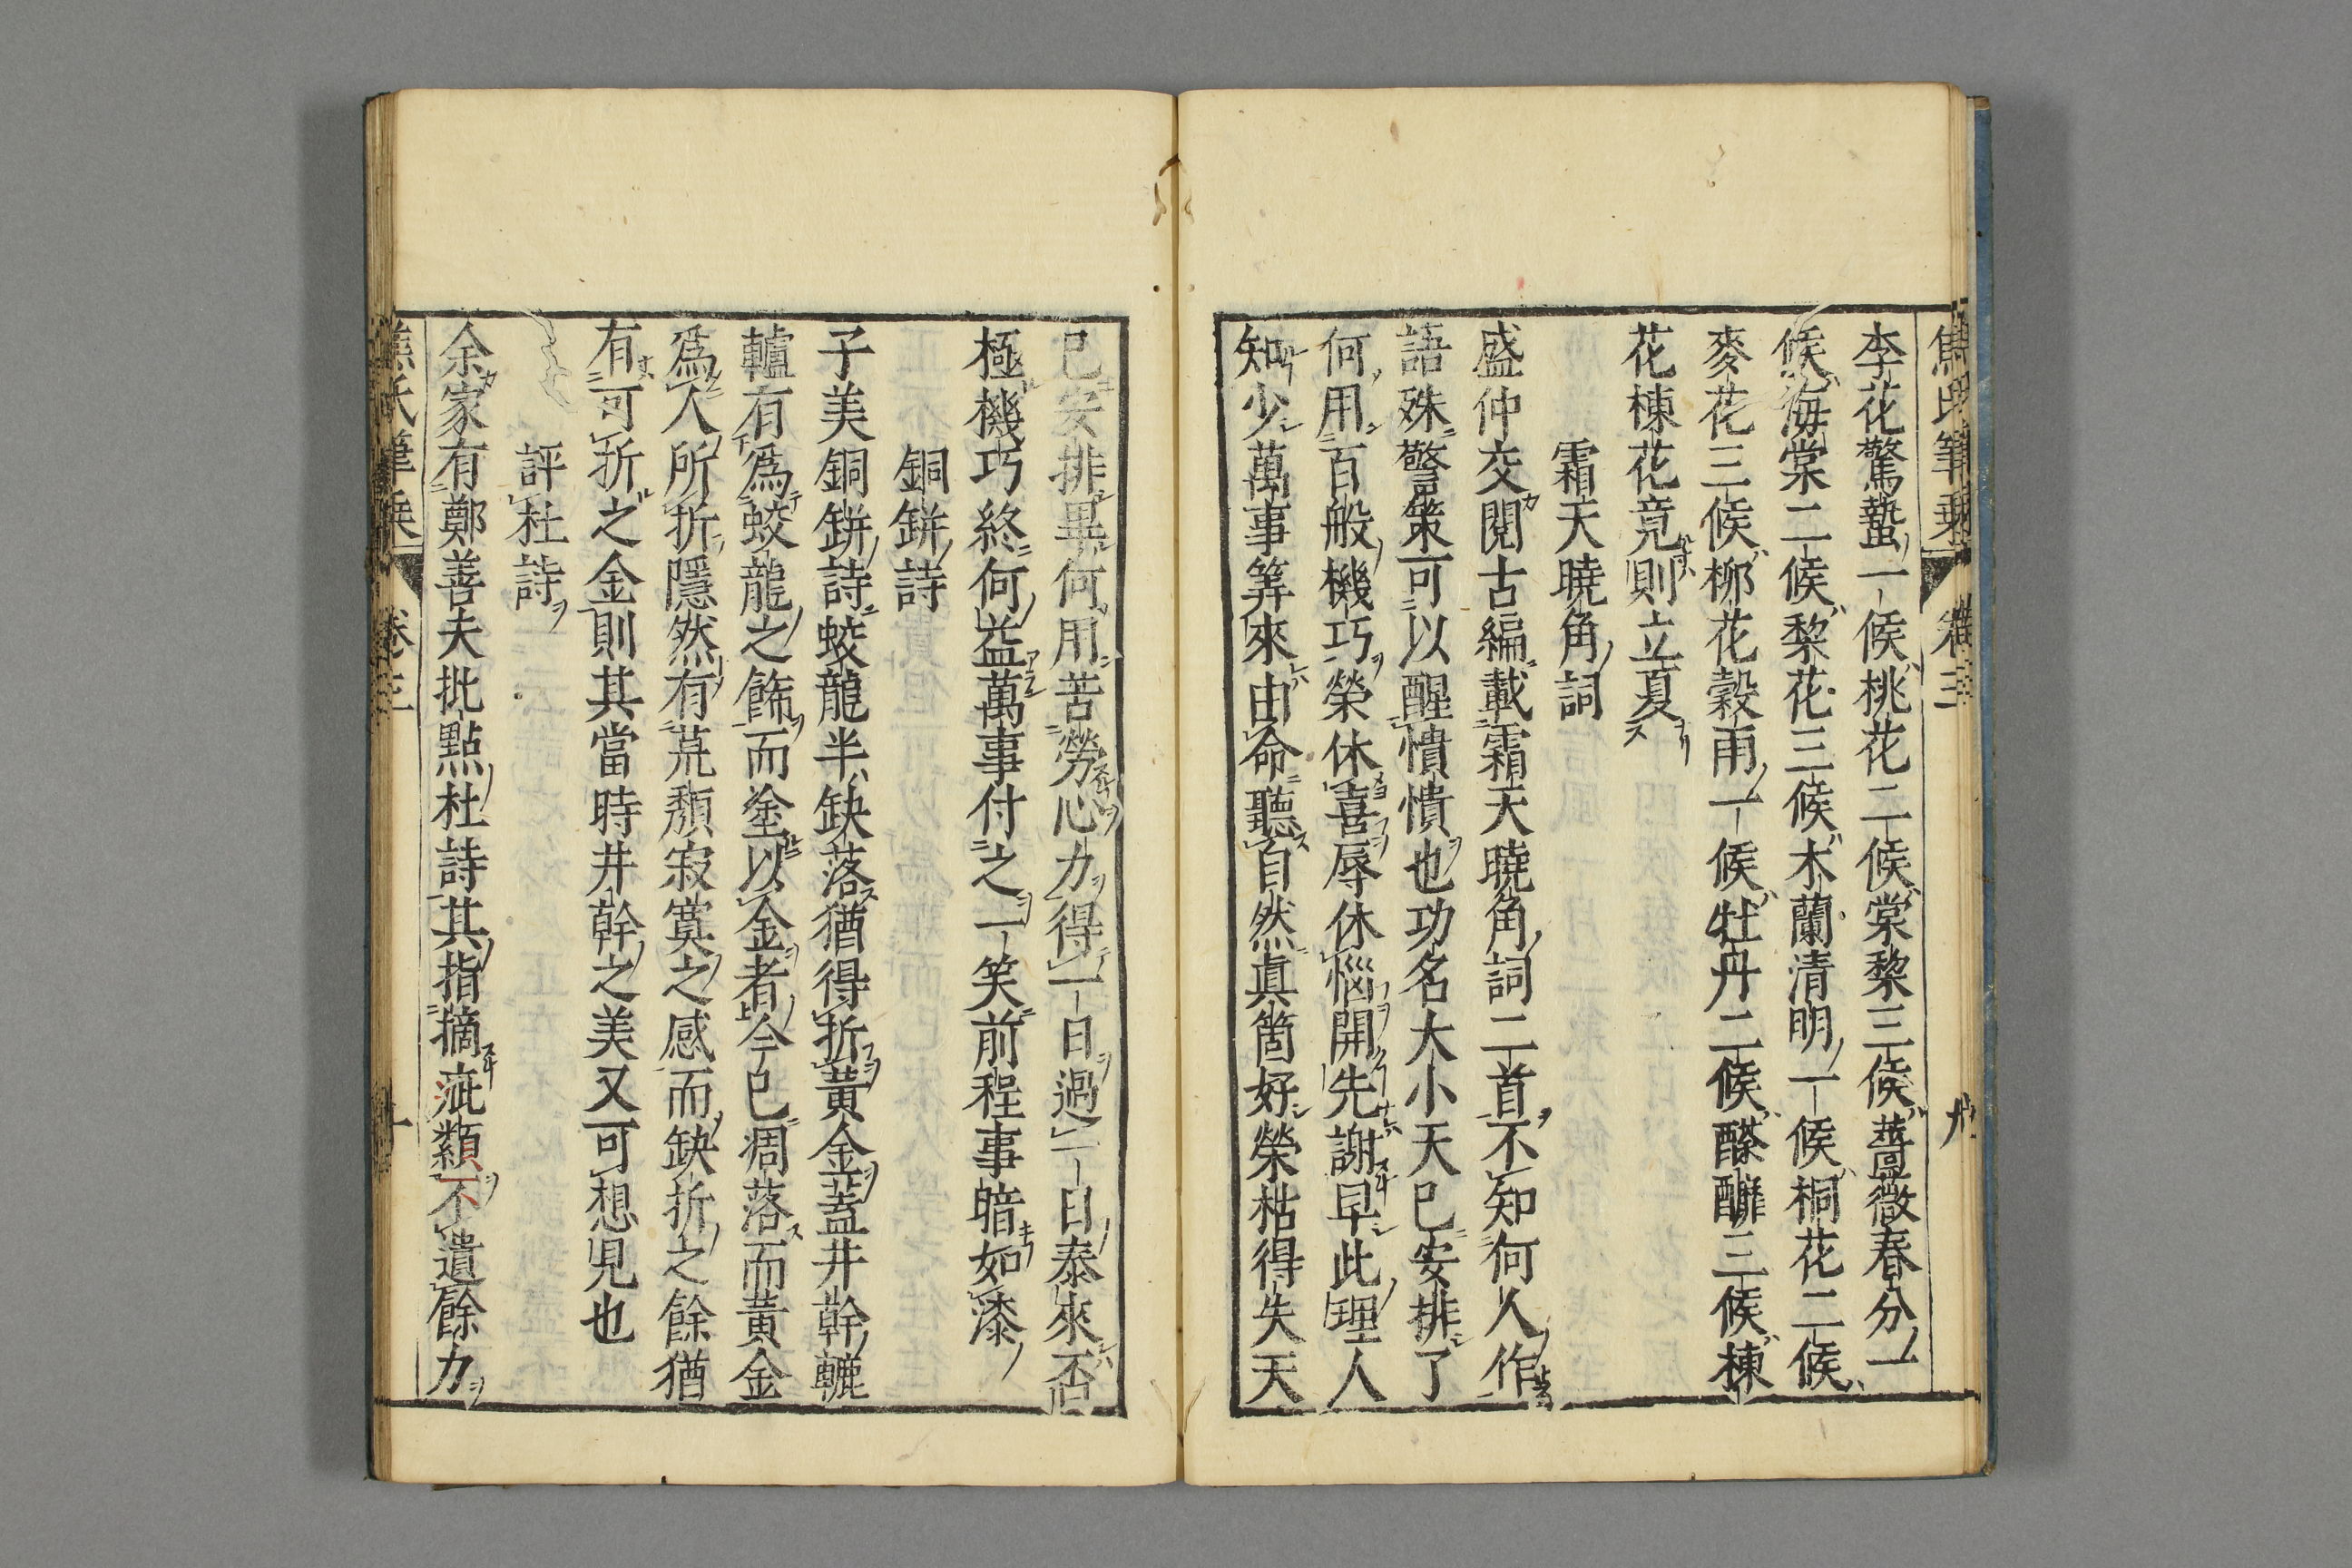 焦氏筆乗 卷三 九
李花驚蟄一候桃花二候棠棃三候薔薇春分一
候海棠二候棃花三候木蘭清明一候桐花二候
麥花三候柳花穀雨一候牡丹二候酴醿三候楝
花楝花竟則立夏
霜天曉角詞
盛仲交閱古編載霜天曉角詞二首不知何人作
語殊警策可以醒憒憒也功名大小天已安排了
何用百般機巧榮休喜辱休惱開先謝早此理人
知少萬事筭來由命聽自然眞箇好榮枯得失天
已安排畢何用苦勞心力得一日過一日泰來否
極機巧終何益萬事付之一笑前程事暗如漆
銅鉼詩
子美銅鉼詩蛟龍半缺落猶得折黃金蓋井幹轆
轤有爲蛟龍之飾而塗以金者今已凋落而黃金
爲人所折隱然有荒頹寂寞之感而缺折之餘猶
有可折之金則其當時井幹之美又可想見也
評杜詩
余家有鄭善夫批點杜詩其指摘疵纇不遺餘力
焦氏筆乗 卷三 十